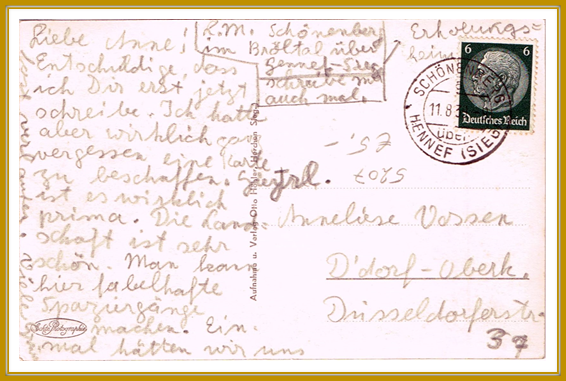 Liebe Anne!
Entschuldige, dass
ich Dir erst jetzt
schreibe. Ich hatte
aber wirklich ganz
vergessen eine Karte
zu beschaffen.
ist es wirklich
prima. Die Land-
schaft ist sehr
schön. Man kann
hier fabelhafte
Spaziergänge
machen. Ein-
mal hätten wir uns
R.M. Schönenberg
im Bröltal über
Hennef-Sieg
schreibe mir
auch mal.
Erholungs-
heim
6 6
Deutsches Reich
SCHÖNENBERG
11.8.3
über
HENNEF (SIEG)
75,-
5207
Frl.
Anneliese Vossen
D'dorf-Oberk.
Düsseldorferstr.
37
Aufnahme u. Verlag Otto
Echte Photographie